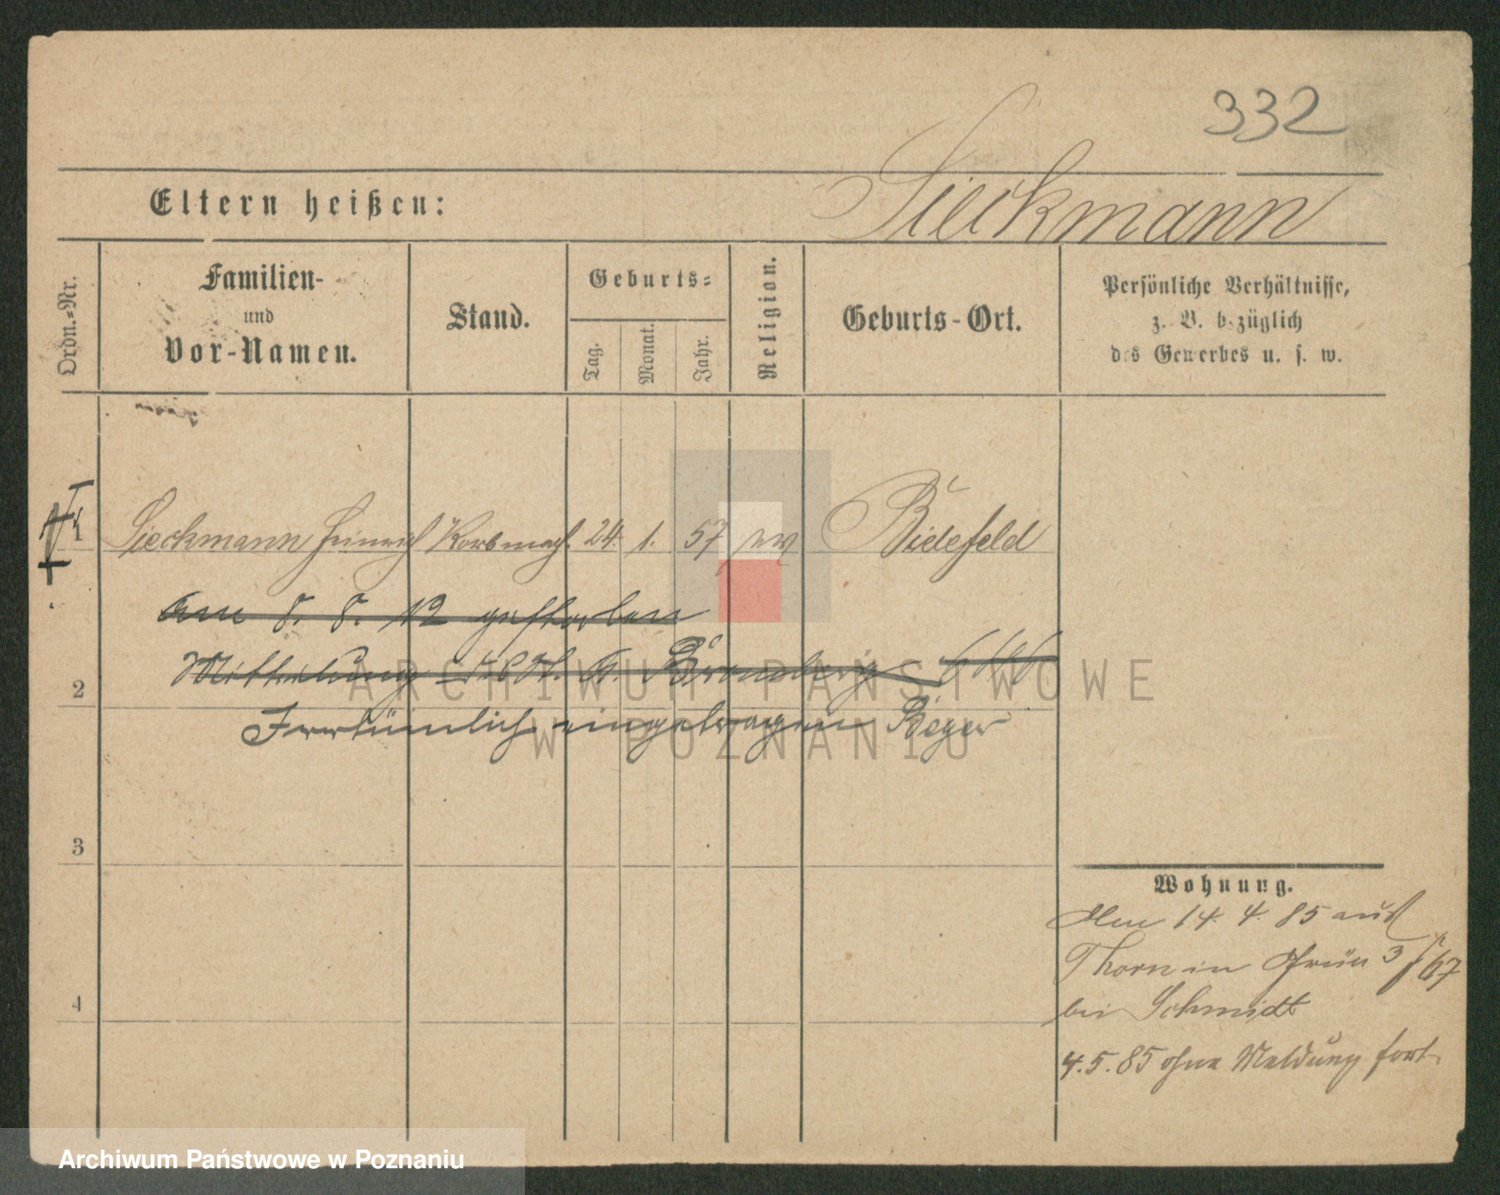 332
Eltern heißen: Sieckmann
Ordn.-Nr.
Familien-
und
Vor-Namen.
Stand.
Geburts-
Tag.
Monat.
Jahr.
Religion.
Geburts-Ort.
Persönliche Verhältnisse,
z. B. bezüglich
des Gewerbes u. s. w.
1 Sieckmann Heinrich Korbmach. 24. 1. 57 ev Bielefeld
am 8. 8. 12 gestorben
2 Mittheilung Bromberg
Irrtümlich eingetragen Beyer
3
Wohnung.
Am 14. 4. 85 aus
Thorn in 3/67
bei Schmidt
4
4. 5. 85 ohne Meldung fort
ARCHIWUM PAŃSTWOWE
W POZNANIU
Archiwum Państwowe w Poznaniu